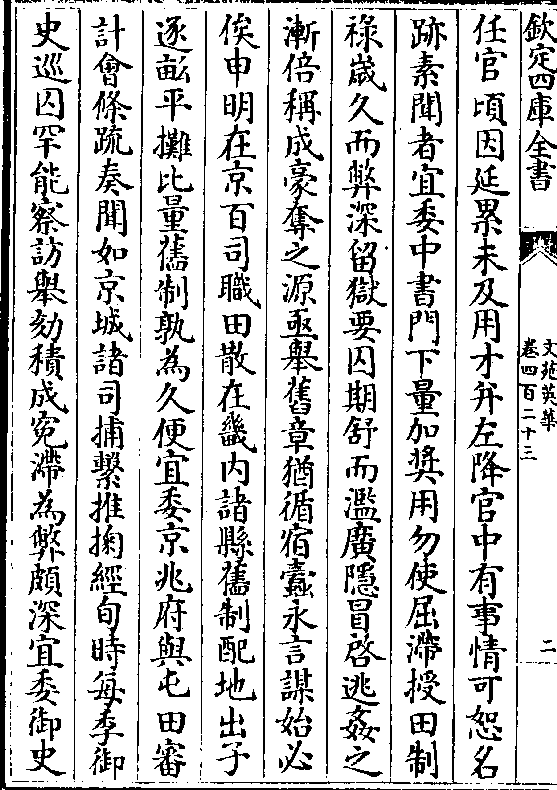 欽定四庫全書
文苑英華
卷四百二十三
二
任官頃因延累未及用才并左降官中有事情可恕名
跡素聞者宜委中書門下量加奬用勿使屈滯授田制
祿嵗久而弊深留獄要囚期舒而濫廣隱冒啓逃姦之
漸倍稱成豪奪之源亟舉舊章猶循宿蠧永言謀始必
俟申明在京百司職田散在畿内諸縣舊制配地出子
逐畝平攤比量舊制孰為久便宜委京兆府與屯田審
計會條疏奏聞如京城諸司捕繫推掬經旬時每季御
史巡囚罕能察訪舉劾積成寃滯為弊頗深宜委御史